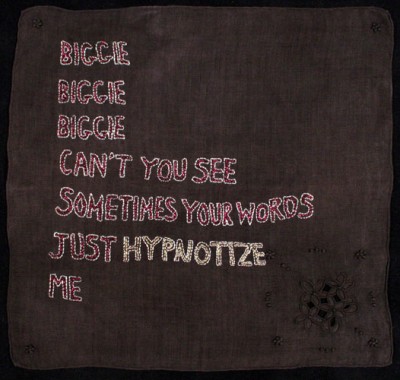 BIGGIE
BIGGIE
BIGGIE
CAN'T YOU SEE
SOMETIMES YOUR WORDS
JUST HYPNOTIZE
ME